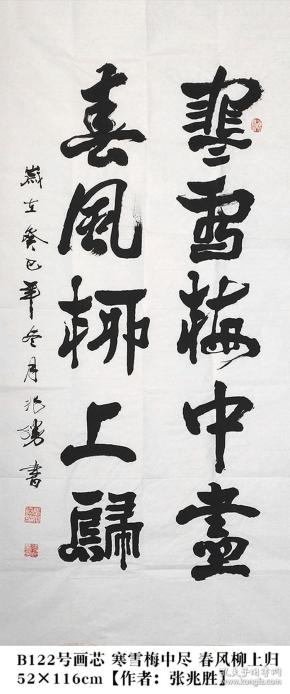 寒雪梅中盡
春風柳上歸
歲在癸巳年冬月兆勝書
B122号画芯 寒雪梅中尽 春风柳上归
52×116cm【作者：张兆胜】